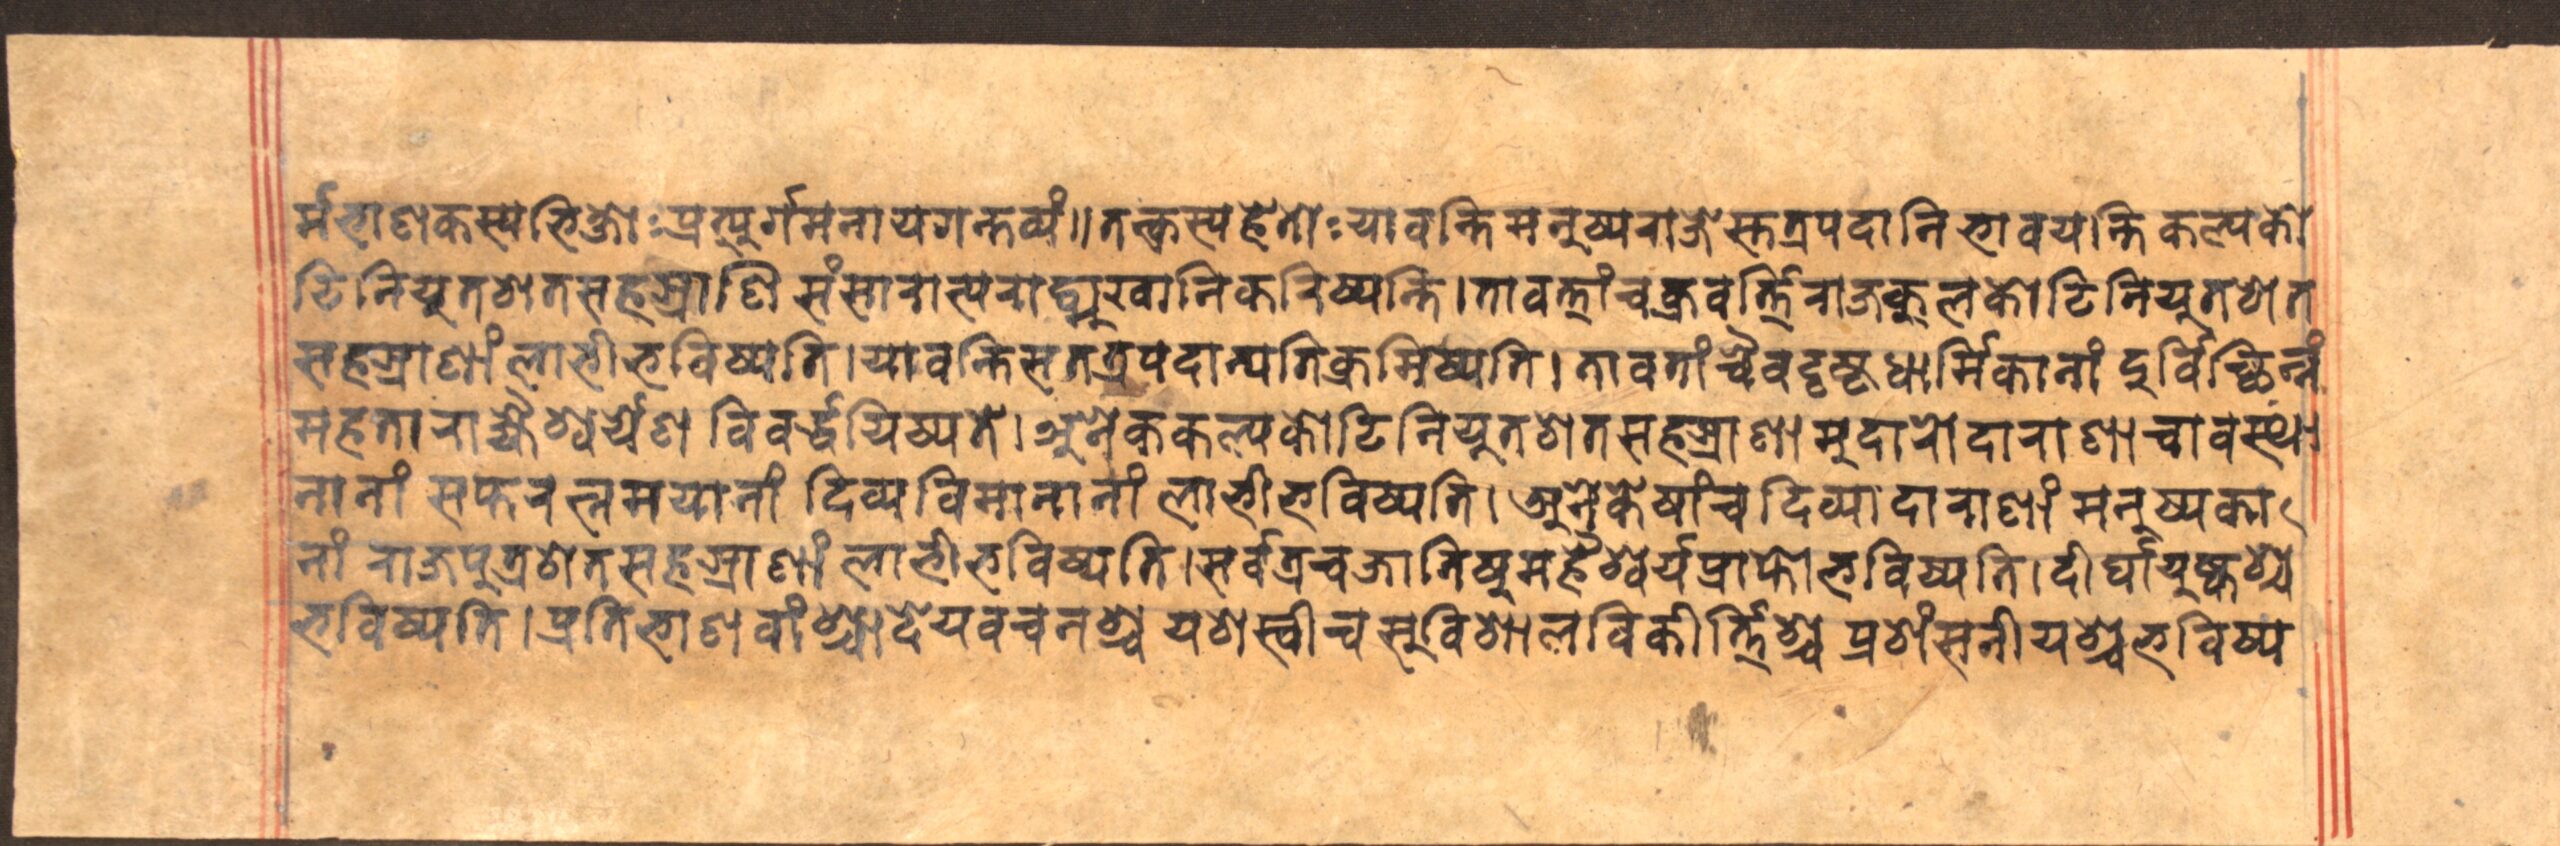 र्मभाणकस्य भिक्षोः प्रत्युर्गमनाय गन्तव्यं॥ तत्कस्य हेतोः यावन्ति मनुष्यराजेस्तत्र पदानि भावयन्ति कल्पको
टिनियुतशतसहस्राणि संसारात्पराङ्मुखानि करिष्यन्ति। तावत्तां चक्रवर्त्तिराजकुलकोटिनियुतशत
सहस्राणां लाभी भविष्यति। यावन्ति स तत्र पदान्यतिक्रमिष्यति। तावतां चैव दृष्टधार्मिकानां दुर्विच्छिन्नं
महता राज्यैश्वर्येण विवर्द्धयिष्यते। अनेककल्पकोटिनियुतशतसहस्राणामुदारोदाराणा चावस्था
नानां सप्तरत्नमयानां दिव्यविमानानां लाभी भविष्यति। अनेकेषां च दिव्यादाराणां मनुष्यका
नां राजपुत्रशतसहस्राणां लाभी भविष्यति। सर्वत्र च जातिषु महैश्वर्यप्राप्तो भविष्यति। दीर्घायुष्कश्च
भविष्यति। प्रतिभाणवांश्चादेयवचनश्च यशस्वी च सुविशालविकीर्त्तिश्च प्रशंसनीयश्च भविष्य